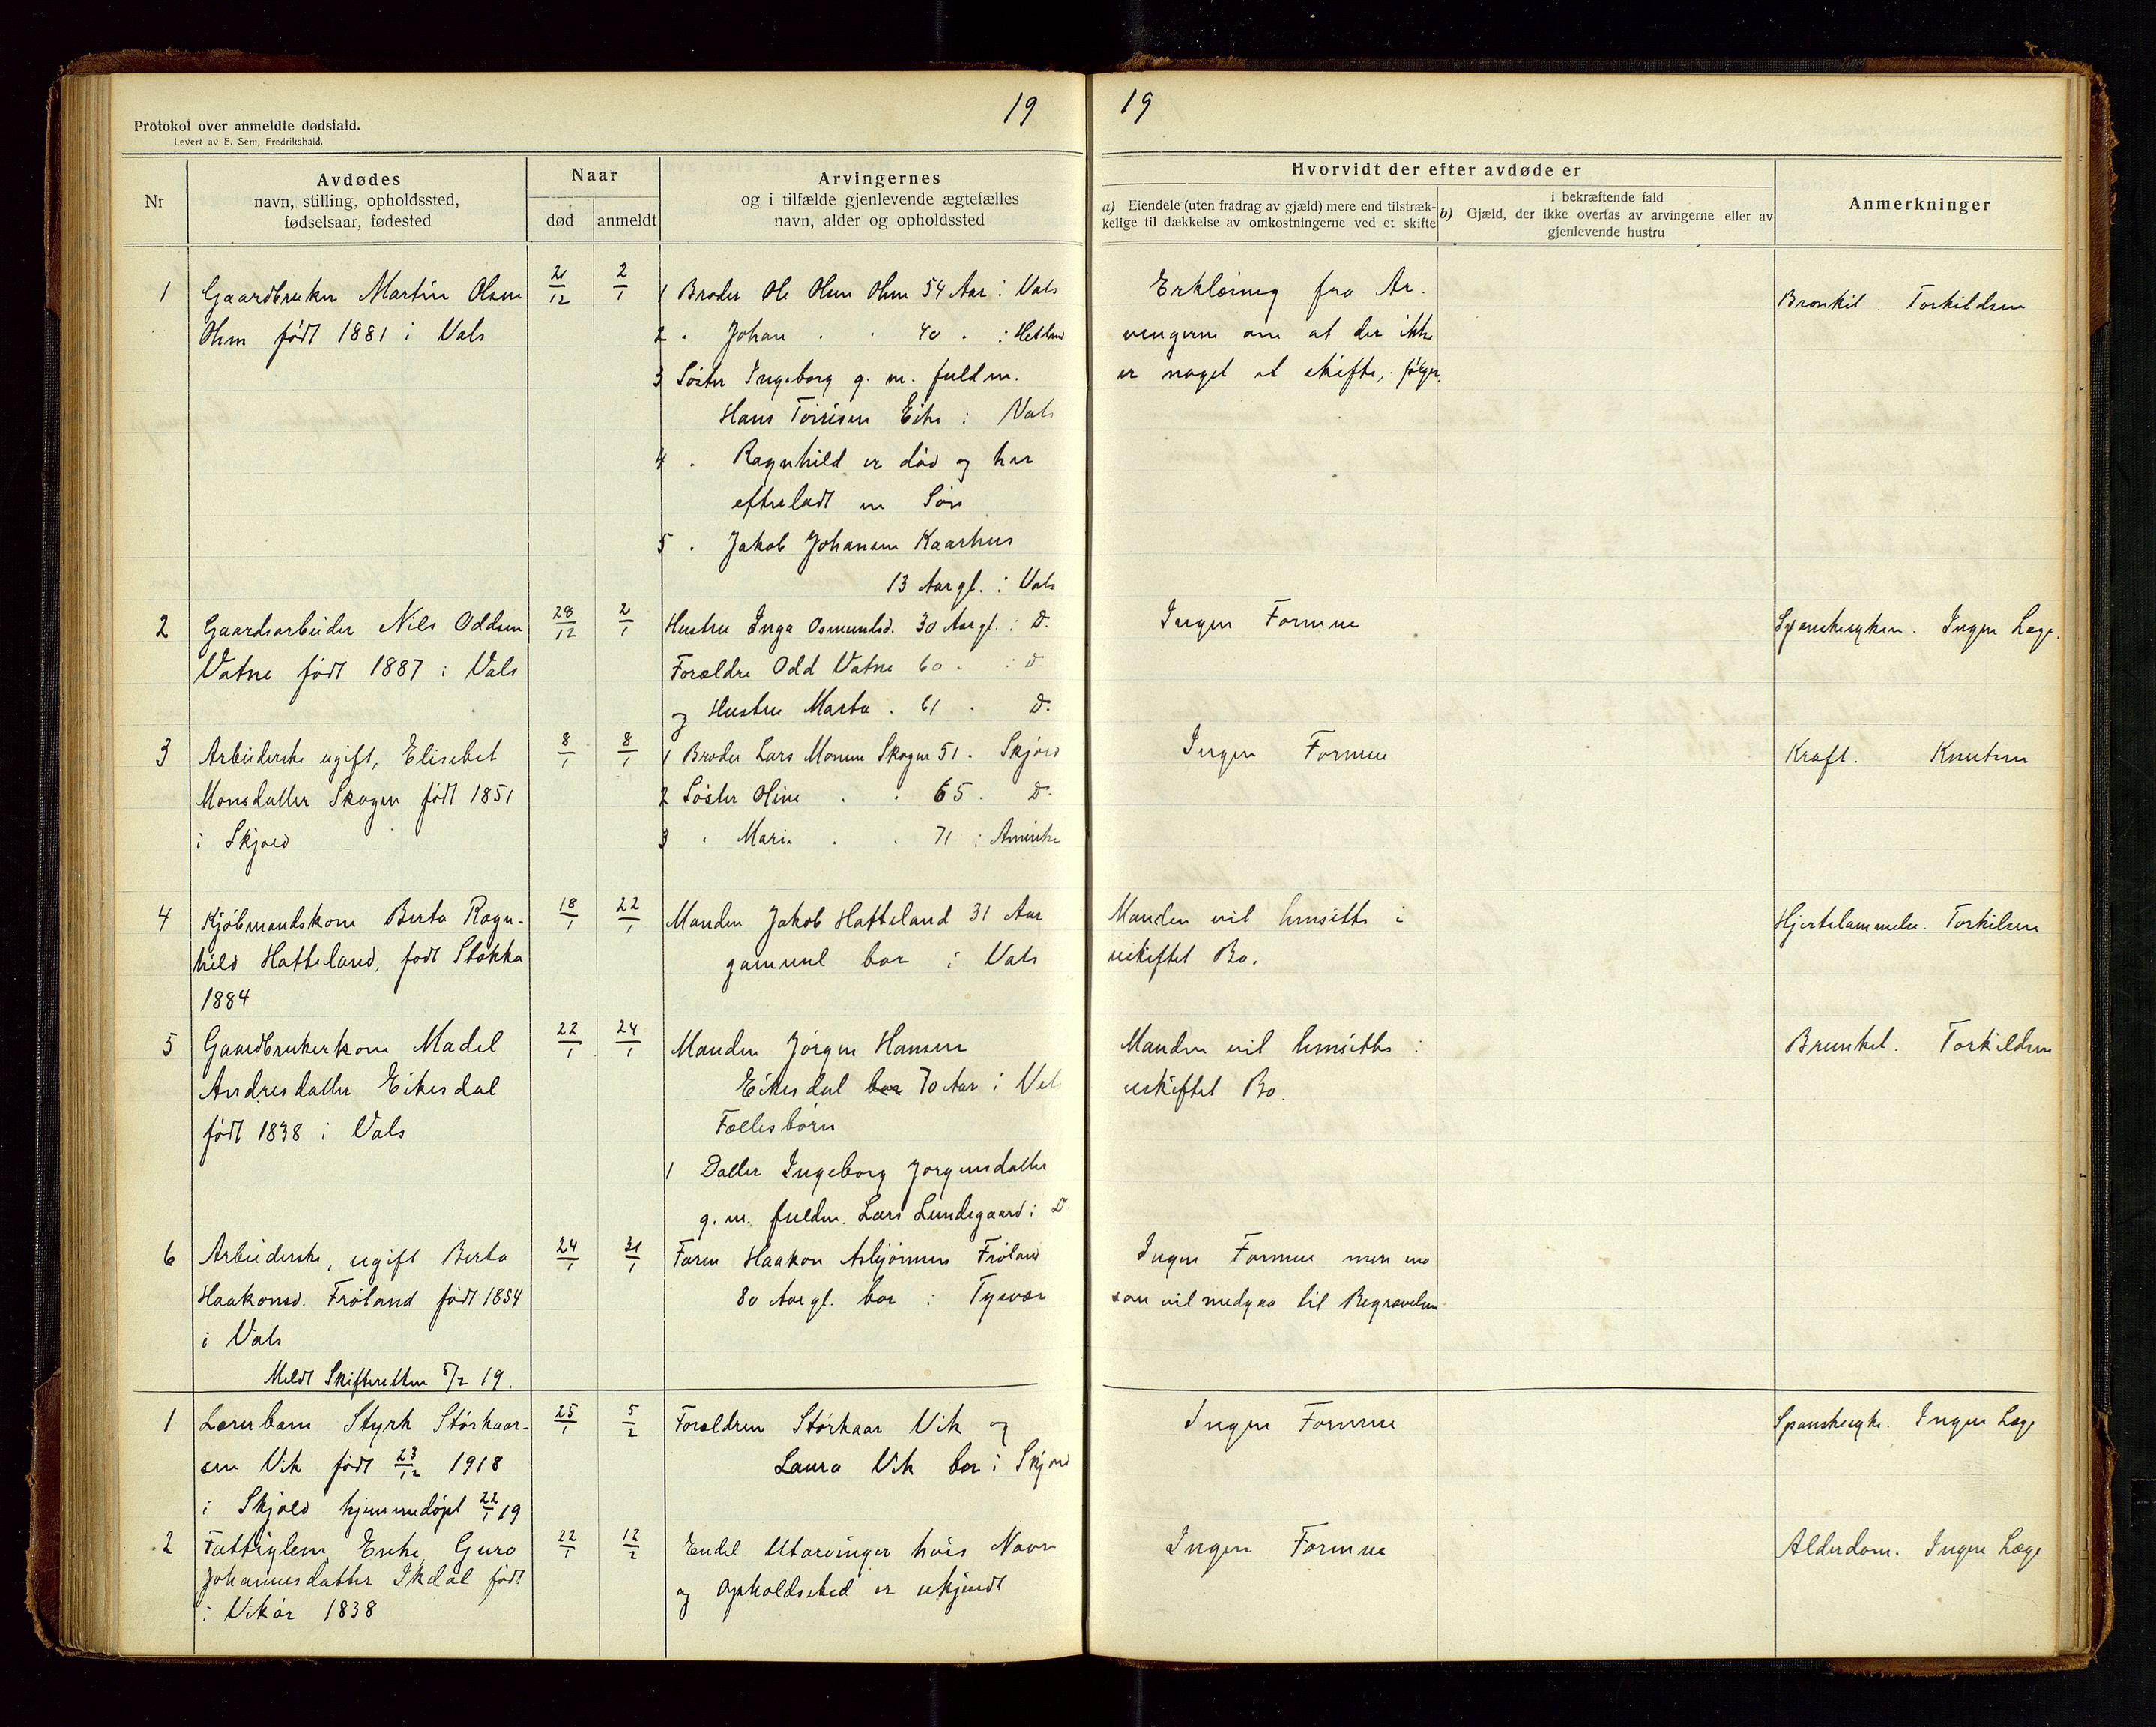 19
19
Protokol over anmeldte dødsfald.
Levert av E. Sem, Fredrikshald.
Nr
Avdødes
navn, stilling, opholdssted,
fødselsaar, fødested
Naar
død
anmeldt
Arvingernes
og i tilfælde gjenlevende ægtefælles
navn, alder og opholdssted
Hvorvidt der efter avdøde er
a) Eiendele (uten fradrag av gjæld) mere end tilstræk-
kelige til dækkelse av omkostningerne ved et skifte
i bekræftende fald
b) Gjæld, der ikke overtas av arvingerne eller av
gjenlevende hustru
Anmerkninger
1
Gaardbruker Martin Olsen
Ohm født 1881 i Vats
21/12
2/1
1 Broder Ole Olsen Ohm 54 Aar i Vats
2 . Johan . . 40 . i
3 Søster Ingeborg g. m. fuldm.
Hans Tørrisen Eike i Vats
4 . Ragnhild er død og har
efterladt en Søn
5 . Jakob Johansen Kaarhus
13 Aar gl. i Vats
Erklæring fra Ar-
vingerne om at der ikke
er noget at skifte, følger.
Bronkit. Torkildsen
2
Gaardsarbeider Nils Oddsen
Vatne født 1887 i Vats
28/12
2/1
Hustru Inga Osmundsd. 30 Aar gl. i D.
Forældre Odd Vatne 60 . i D.
og Hustru Marta . 61 . D.
Ingen Formue
Spanskesyken. Ingen Læge.
3
Arbeiderske ugift, Elisabet
Monsdatter Skogen født 1851
i Skjold
8/1
8/1
1 Broder Lars Monsen Skogen 51 . Skjold
2 Søster Oline . . 65 . D.
3 . Mari. . . 71 i Amerika
Ingen Formue
Kræft. Knutsen
4
Kjøbmandskone Berta Ragn-
hild Hatteland, født Stakka
1884
18/1
22/1
Manden Jakob Hatteland 31 Aar
gammel bor i Vats
Manden vil hensitte i
uskiftet Bo.
Hjertelammelse. Torkilsen
5
Gaardbrukerkone Madel
Andresdatter Eikesdal
født 1838 i Vats
22/1
24/1
Manden Jørgen Hansen
Eikesdal bor 70 Aar i Vats
Fællesbørn
1 Datter Ingeborg Jørgensdatter
g. m. fuldm. Lars Lundegaard i D.
Manden vil hensitte i
uskiftet Bo.
Bronkit. Torkildsen
6
Arbeiderske, ugift Berta
Haakonsd. Frøland født 1854
i Vats
24/1
31/1
Faren Haakon Asbjørnsen Frøland
80 Aar gl. bor i Tysvær
Ingen Formue men
som vil medgaa til Begravelsen
Meldt Skifteretten 5/2 19.
1
Lærerbarn Styrk Størkaar-
sen Vik født 23/12 1918
i Skjold hjemmedøpt 22/1 19
25/1
5/2
Forældrene Størkaar Vik og
Laura Vik bor i Skjold
Ingen Formue
Spanskesyke. Ingen Læge
2
Fattiglem Enke Guro
Johannesdatter Ikdal født
i Vikør 1838
22/1
12/2
Endel Utarvinger hvis Navn
og Opholdssted er ukjendt
Ingen Formue
Alderdom. Ingen Læge